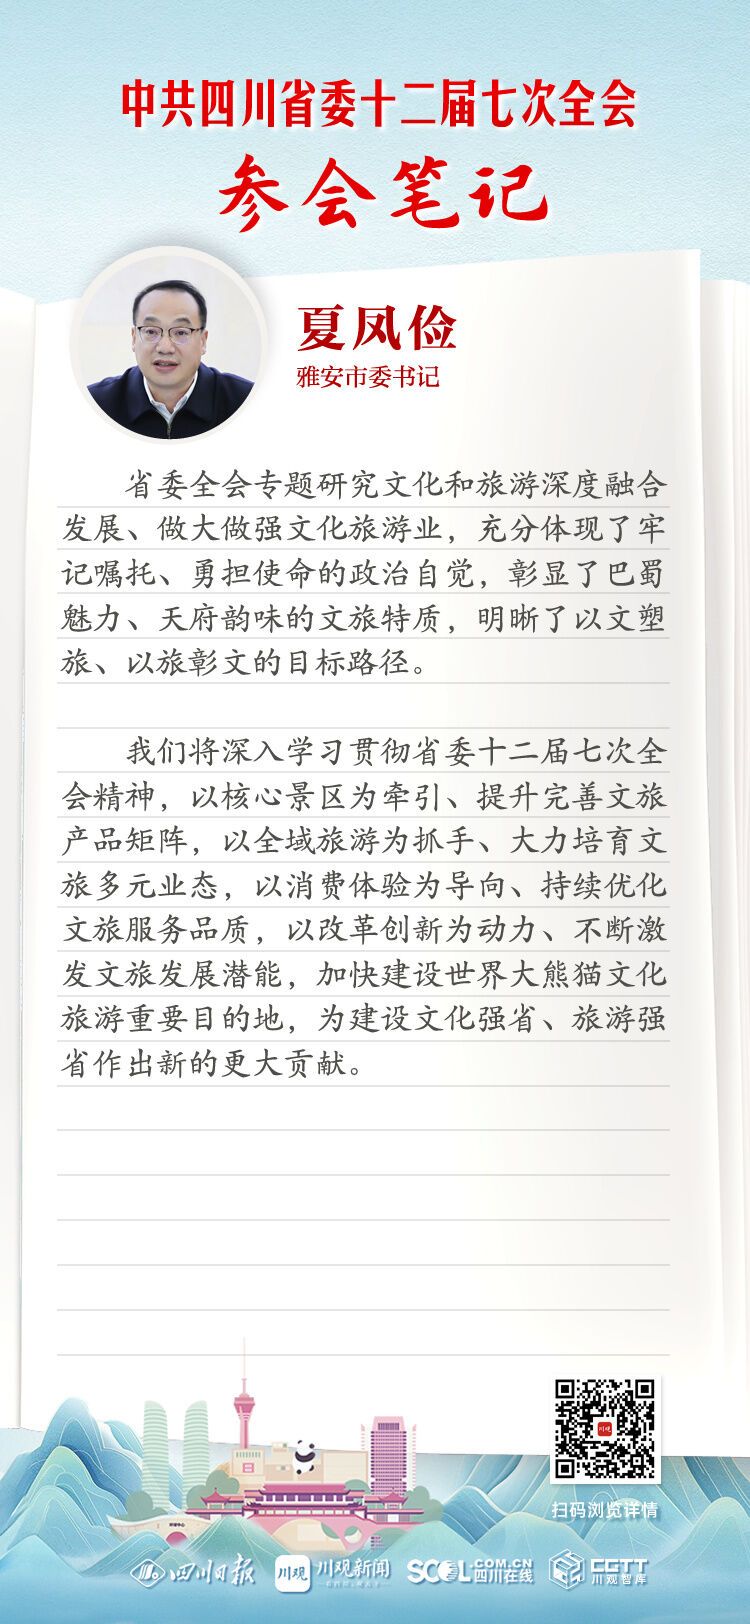 中共四川省委十二届七次全会
参会笔记
夏凤俭
雅安市委书记
省委全会专题研究文化和旅游深度融合
发展、做大做强文化旅游业，充分体现了牢
记嘱托、勇担使命的政治自觉，彰显了巴蜀
魅力、天府韵味的文旅特质，明晰了以文塑
旅、以旅彰文的目标路径。
我们将深入学习贯彻省委十二届七次全
会精神，以核心景区为牵引、提升完善文旅
产品矩阵，以全域旅游为抓手、大力培育文
旅多元业态，以消费体验为导向、持续优化
文旅服务品质，以改革创新为动力、不断激
发文旅发展潜能，加快建设世界大熊猫文化
旅游重要目的地，为建设文化强省、旅游强
省作出新的更大贡献。
川观
扫码浏览详情
四川日报
川观
川观新闻
SCOL.COM.CN
四川在线
CGTT
川观智库